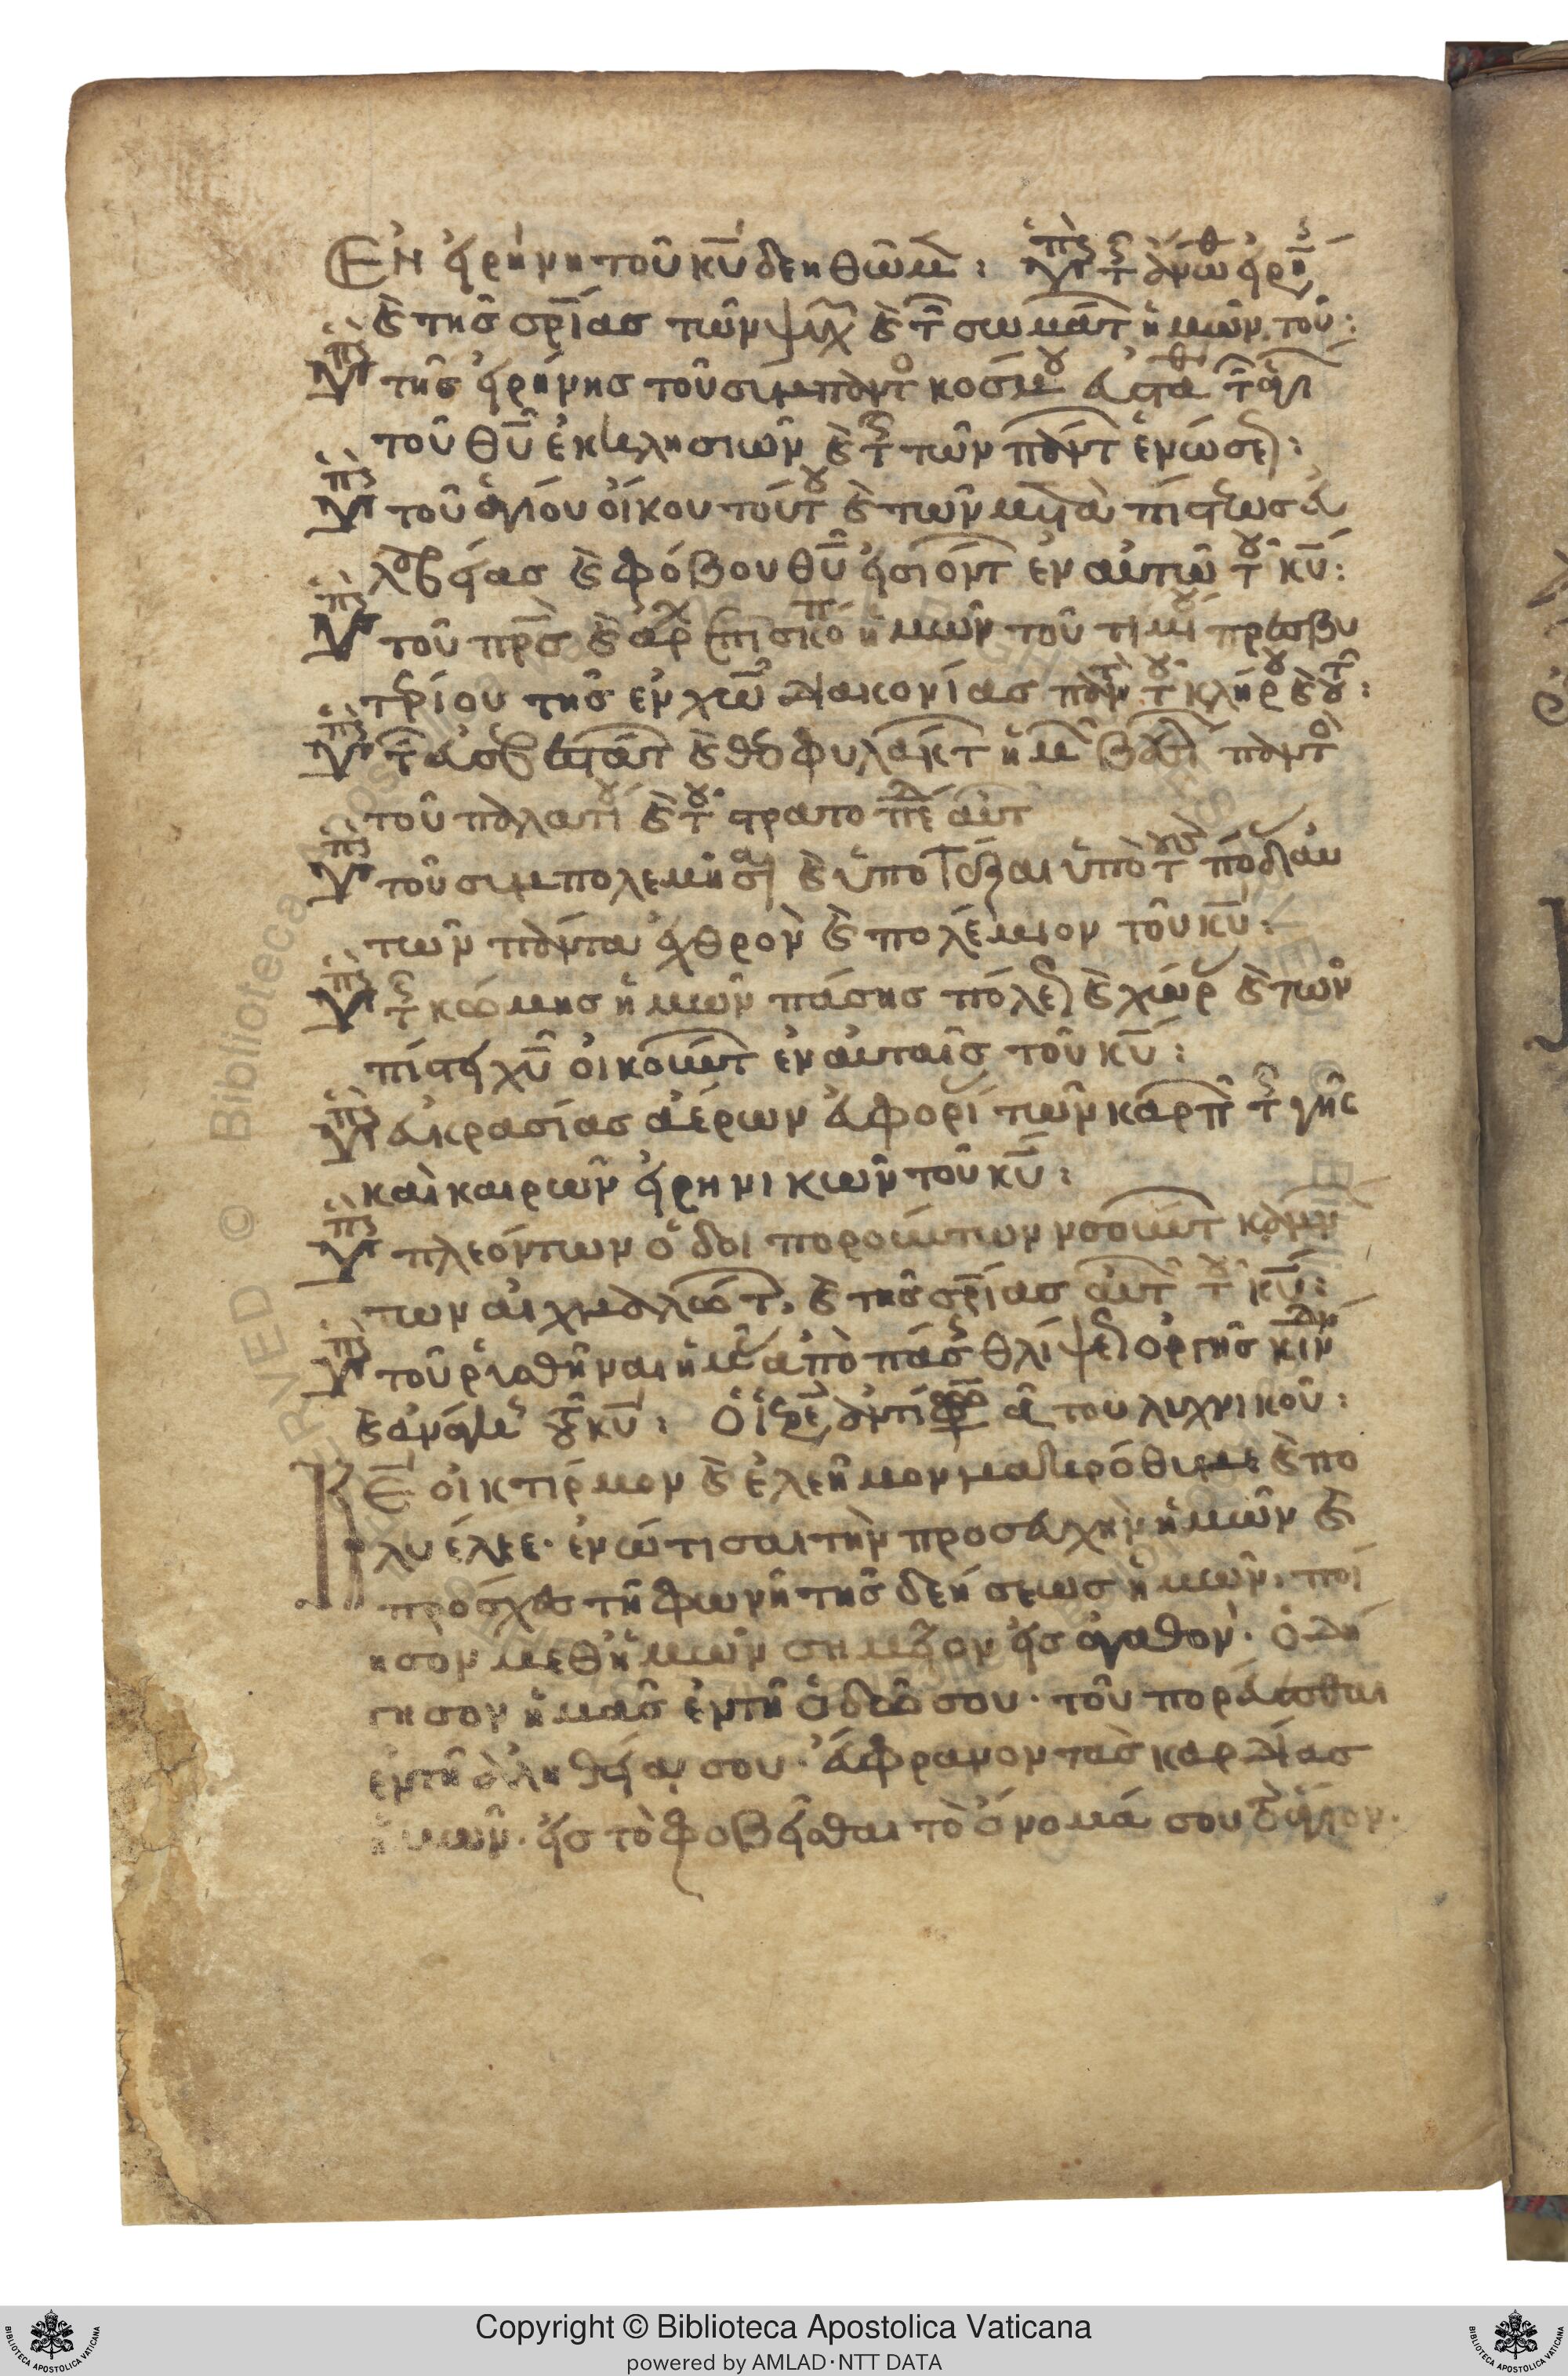 Ἐν εἰρήνη τοῦ κ̅υ̅ δεηθῶμ: Ὑπὲρ τ ἄνωθ εἰρή
καὶ τῆς σ̅ρίας τῶν ψυχ καὶ τ σωμάτ ἡμῶν. τοῦ:
Ὑπὲρ τῆς εἰρήνης τοῦ σύμπαντο κόσμου εὐσταθ τ ἁγι
τοῦ θ̅υ̅ ἐκκλησιῶν καὶ τῆς τῶν πάντ ἑνώσε:
Ὑπὲρ τοῦ ἁγίου οἴκου τούτου καὶ τῶν μετὰ πίστεως εὐ
λαβείας καὶ φόβου θ̅υ̅ εἰσιόντ ἐν αὐτῶ τοῦ κ̅υ̅:
Ὑπὲρ τοῦ π̅ρ̅ς καὶ ἀρχ ἐπισκόπ ἡμῶν τοῦ τιμίου πρεσβυ
τερίου τῆς ἐν χ̅ω̅ διακονίας παντ τοῦ κλήρου καὶ τοῦ:
Ὑπὲρ τ εὐσεβεστάτ καὶ θεοφυλάκτ ἡμ βασι παντὸ
τοῦ παλατίου καὶ τοῦ στρατοπέδ αὐτ
Ὑπὲρ τοῦ συμπολεμῆσαι καὶ ὑποτάξαι ὑπὸ τοὺς πόδας αὐ
τῶν πάντα ἐχθρὸν καὶ πολέμιον τοῦ κ̅υ̅:
Ὑπὲρ τῆς κώμης ἡμῶν πάσης πόλε καὶ χώρ καὶ τῶν
πίστει χ̅υ̅ οἰκούντ ἐν αὐταῖς τοῦ κ̅υ̅:
Ὑπὲρ εὐκρασίας ἀέρων εὐφορί τῶν καρπ τῆς γῆς
καὶ καιρῶν εἰρηνικῶν τοῦ κ̅υ̅:
Ὑπὲρ πλεόντων ὁδοιπορούντων νοσούντ καμν
των αἰχμαλώτ, καὶ τῆς σ̅ρίας αὐτ τοῦ κ̅υ̅:
Ὑπὲρ τοῦ ῥυσθῆναι ἡμᾶς ἀπὸ πάσης θλίψε ὀργῆς κινδν
καὶ ἀνάγκης τοῦ κ̅υ̅: ἀντιφ α του λυχνικοῦ:
Κ̅ε̅ οἰκτίρμον καὶ ἐλεῆμον μακρόθυμε καὶ πο
λυέλεε· ἐνώτισαι τὴν προσευχὴν ἡμῶν καὶ
πρόσχες τῆ φωνῆ τῆς δεήσεως ἡμῶν. ποί
ησον μεθ ἡμῶν σημεῖον εἰς ἀγαθόν· ὁδή
γησον ἡμᾶς ἐν τῆ ὁδῶ σου· τοῦ πορεύεσθαι
ἐν τῆ ἀληθεία σου· εὔφρανον τὰς καρδίας
ἡμῶν· εἰς τὸ φοβεῖσθαι τὸ ὄνομά σου τὸ ἅγιον·
Copyright © Biblioteca Apostolica Vaticana
powered by AMLAD·NTT DATA